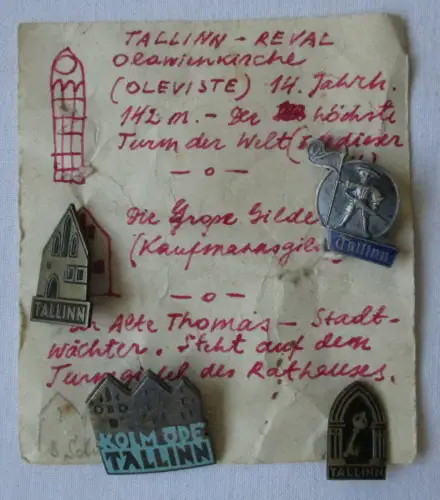 TALLINN – REVAL
Olawienkirche
(OLEVISTE) 14. Jahrh.
142 m. – Der Höchste
Turm der Welt (
— o —
Die Große Gilde
(Kaufmannsgil
Tallinn
TALLINN
— o —
Alte Thomas – Stadt-
wächter. Steht auf dem
Turm des Rathauses.
KOLM ÕDE
TALLINN
TALLINN